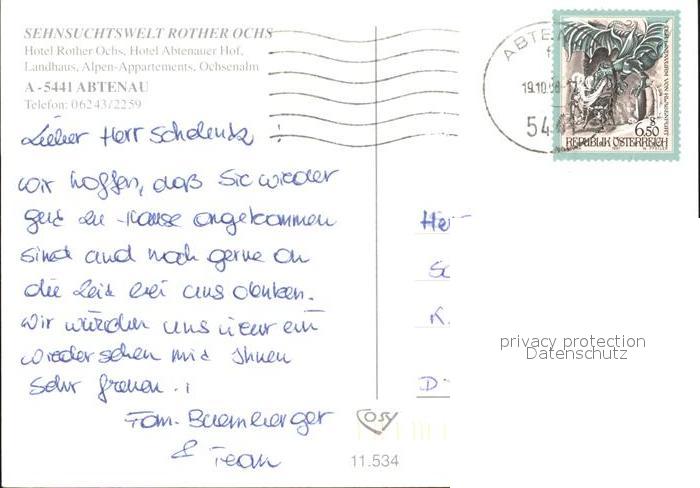 SEHNSUCHTSWELT ROTHER OCHS
Hotel Rother Ochs, Hotel Abtenauer Hof,
Landhaus, Alpen-Appartements, Ochsenalm
A - 5441 ABTENAU
Telefon: 06243/2259
Lieber Herr
wir hoffen, daß Sie wieder
gut zu Hause angekommen
sind und noch gerne an
die Zeit bei uns denken.
Wir würden uns über ein
wiedersehen mit Ihnen
sehr freuen.
Fam.
& Team
COSY
11.534
ABTEN
19.10.98
6.50
REPUBLIK ÖSTERREICH
He
Sc
K.
D-
privacy protection
Datenschutz